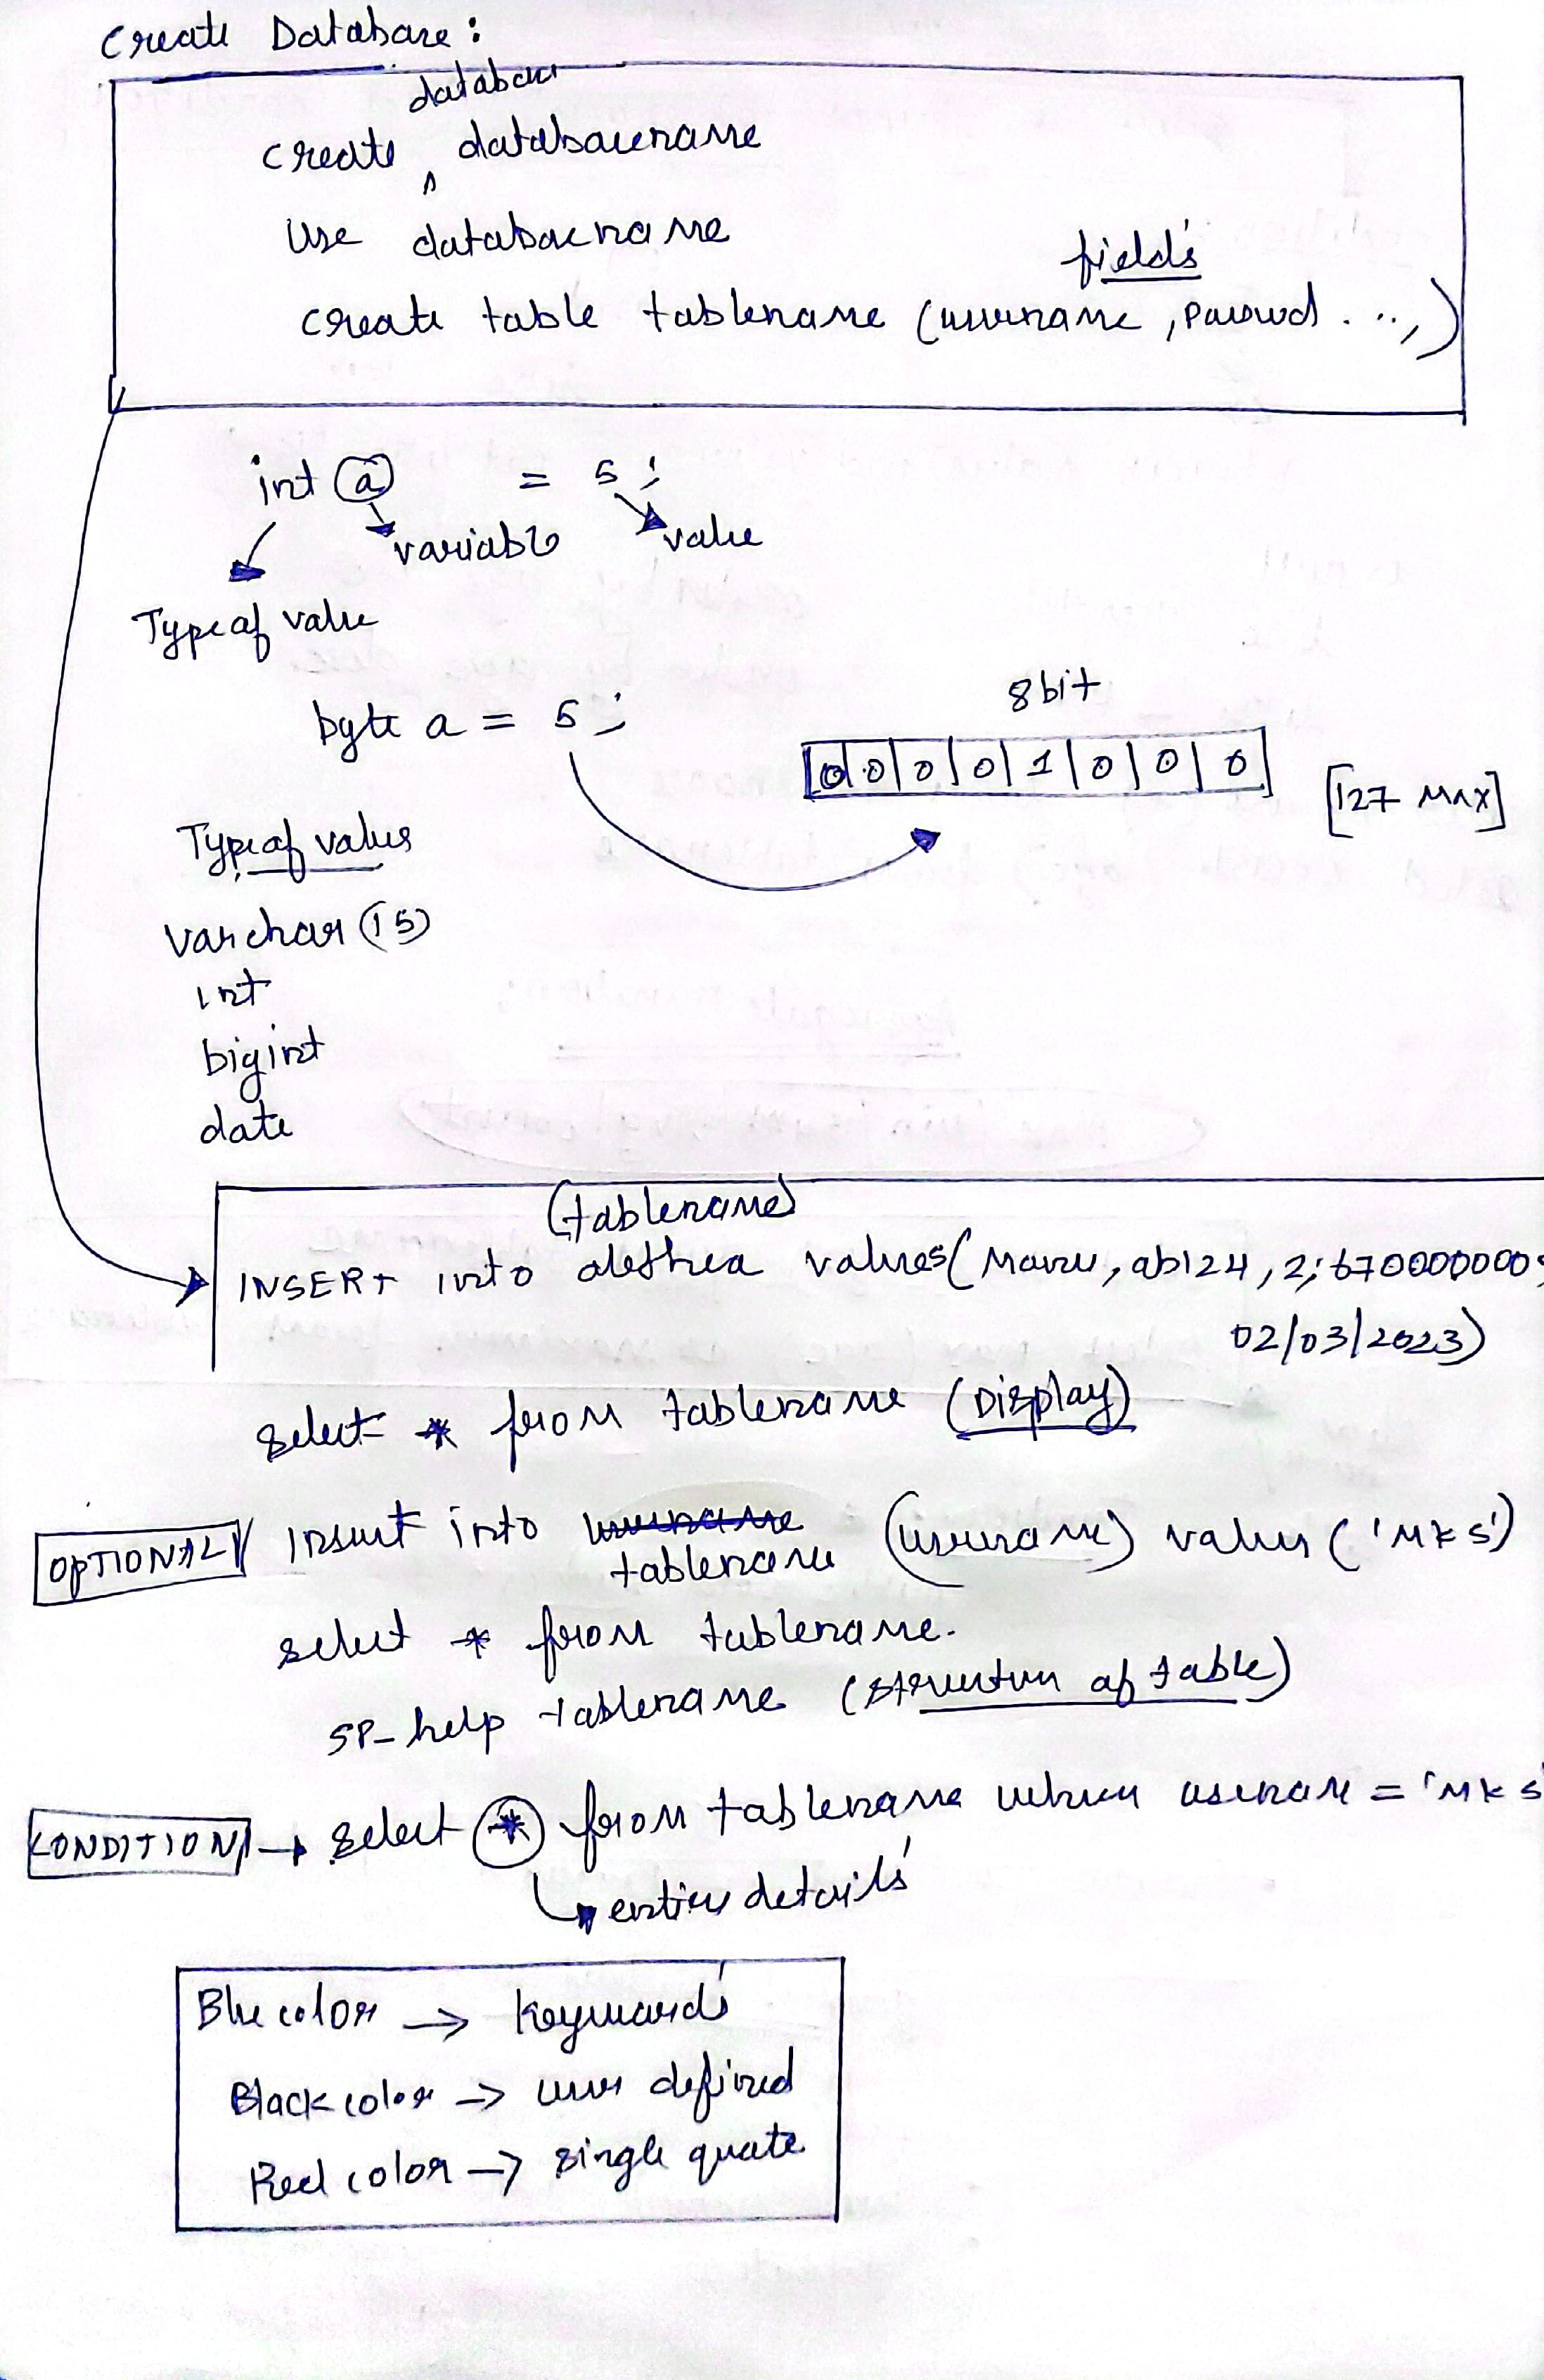 Create Database:
database
create ^ databasename
Use databasename
fields
create table tablename (username, passwd ...,)
int a = 5;
variable value
Type of value
byte a = 5;
8bit
0 0 0 0 1 0 0 0
[127 MAX]
Type of values
varchar (15)
int
bigint
date
(tablename)
INSERT into alethea values(Manu, ab124, 2, 670000000
02/03/2023)
select * from tablename (Display)
OPTIONALLY Insert into username (username) values ('MKS')
tablename
select * from tablename.
SP_help tablename (structure of table)
CONDITION → select * from tablename where usename = 'MKS'
entire details
Blue color → keywords
Black color → user defined
Red color → single quate